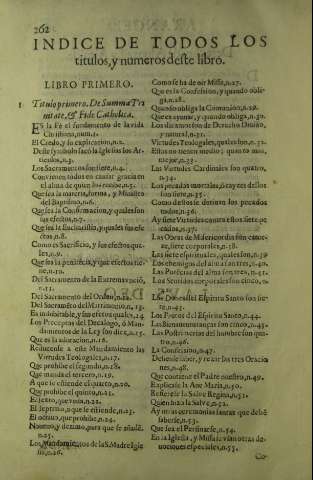 262
INDICE DE TODOS LOS
titulos, y numeros deste libro.
LIBRO PRIMERO.
1 Titulo primero. De Summa Tri
nitate, & Fide Catholica.
ES la Fè el fundamento de la vida
Christiana, num.1.
El Credo, y su explicacion, n.2.
Deste simbolo sacò la Iglesia los Ar-
ticulos, n.3.
Los Sacramentos son siete, n.4.
Convienen todos en causar gracia en
el alma de quien los recibe, n.5.
Que sea la materia, forma, y Ministro
del Baptismo, n.6.
Que sea la Confirmacion, y quales son
sus efectos, n.7.
Que sea la Eucharistia, y quales sus efe
ctos, n.8.
Como es Sacrificio, y sus efectos qua-
les, n.9.
Que sea la penitẽcia, y que efectos tie-
ne, n.10.
Del Sacramento de la Extremaunciõ,
n.11.
Del Sacramento del Orden, n.12.
Del Sacramento del Matrimonio, n.13.
Es indisoluble, y sus efectos quales, 14
Los Preceptos del Decalogo, ò Man-
damientos de la Ley son diez, n.15.
Que es la adoracion, n.16.
Reducense a este Mandamiento las
Virtudes Teologales, n.17.
Que prohibe el segundo, n.18.
Que manda el tercero, n.19.
A que se estiende el quarto, n.20.
Que prohibe el quinto, n.21.
El sexto, que vicio, n.22.
El septimo, a que se estiende, n.23.
El octavo, que prohibe, n.24.
Nono, y decimo, para que se añadiè.
n.25.
Los Mandamientos de la S. Madre Igle
sia, n.26.
Como se ha de oir Missa, n.27.
Que es la Confession, y quando obli-
ga, n.28.
Quando obliga la Comunion, n.29.
Que es ayunar, y quando obliga, n.30.
Los diezmos son de Derecho Divino,
y natural, n.31.
Virtudes Teologales, quales son, n.32.
Estas no tienen medio; quanto mas,
mejor, n.33.
Las Virtudes Cardinales son quatro,
n.34.
Los pecados mortales, ò raizes dellos
son siete, n.35.
Como destos se derivan los pecados
todos, n.36.
Ay siete Virtudes contra estos siete pe
cados, n.37.
Las Obras de Misericordia son cator-
ze, siete corporales, n.38.
Las siete espirituales, quales son, n.39
Los enemigos del alma son tres, n.40.
Las Potẽcias del alma son tres, n.41.
Los Sentidos corporales son cinco, n.
42.
Los Dones del Espiritu Santo son sie-
te, n.43.
Los Frutos del Espiritu Santo, n.44.
Las Bienaventuranças son ocho, n.45.
Las Postrimerias del hombre son qua-
tro, n.46.
La Confession, n.47.
Debense saber, y rezar las tres Oracio
nes, n.48.
Que contiene el Padre nuestro, n.49.
Explicase la Ave Maria, n.50.
Refierese la Salve Regina, n.51.
Quien hizo la Salve, n.52.
Ay otras ceremonias santas que debẽ
saberse, n.53.
Que sea el Persinarse, n.54.
En la Iglesia, y Missa se vàn otras de-
vociones especiales, n.55.
Co-